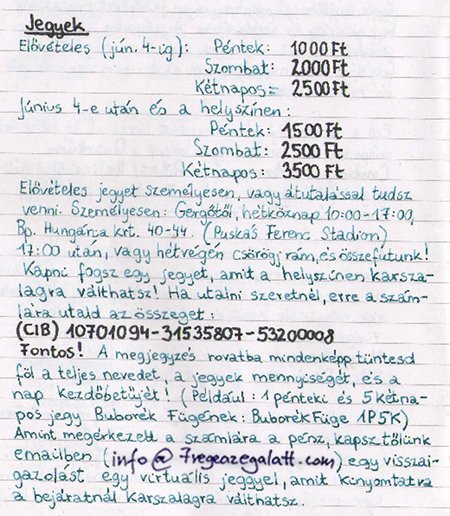 Jegyek
Elővételes (jún. 4-ig): Péntek: 1000 Ft
Szombat: 2000 Ft
Kétnapos: 2500 Ft
Június 4-e után és a helyszínen:
Péntek: 1500 Ft
Szombat: 2500 Ft
Kétnapos: 3500 Ft
Elővételes jegyet személyesen, vagy átutalással tudsz
venni. Személyesen: Gergőtől, hétköznap 10:00-17:00,
Bp. Hungária krt. 40-44. (Puskás Ferenc Stadion)
17:00 után, vagy hétvégén csörögj rám, és összefutunk!
Kapni fogsz egy jegyet, amit a helyszínen karsza-
lagra válthatsz! Ha utalni szeretnél, erre a szám-
lára utald az összeget:
(CIB) 10701094-31535807-53200008
Fontos! A megjegyzés rovatba mindenképp tüntesd
föl a teljes nevedet, a jegyek mennyiségét, és a
nap kezdőbetűjét! (Például: 1 pénteki és 5 kétna-
pos jegy Buborék Fügének: Buborék Füge 1P5K)
Amint megérkezett a számlára a pénz, kapsz tőlünk
emailben (info@7vegeazegalatt.com) egy visszai-
gazolást egy virtuális jeggyel, amit kinyomtatva
a bejáratnál karszalagra válthatsz.